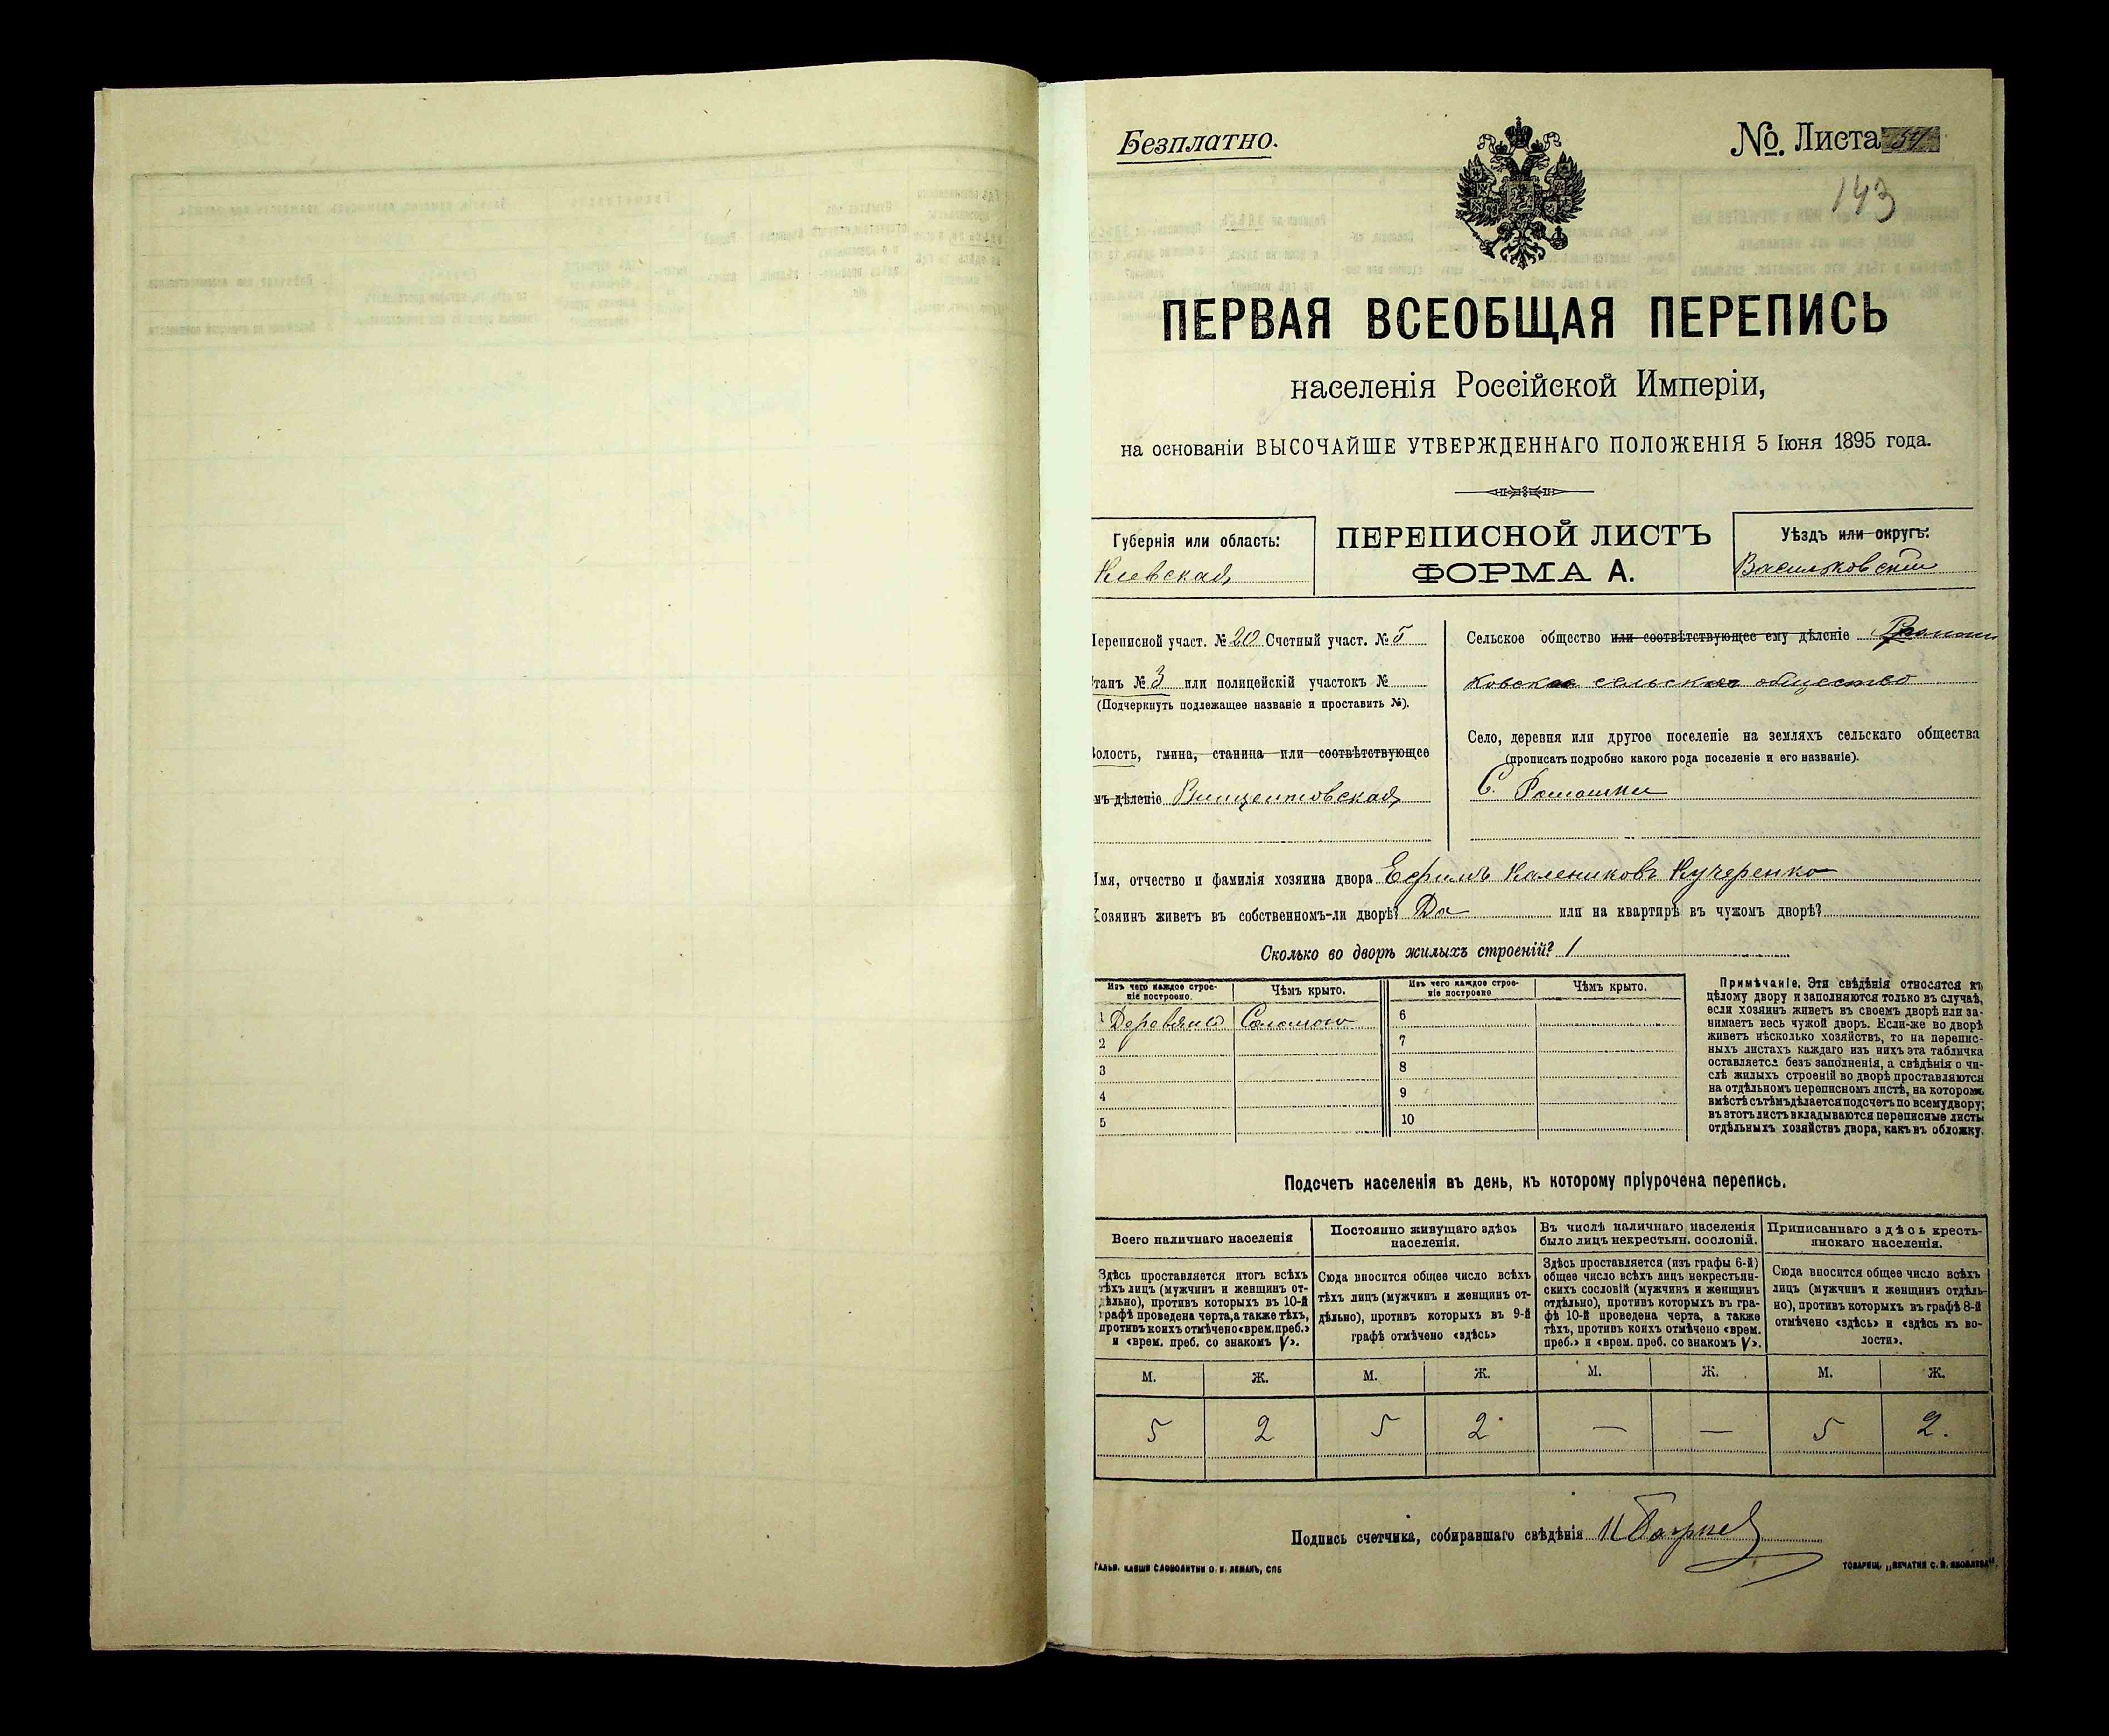 Безплатно.
№ Листа 54
143
ПЕРВАЯ ВСЕОБЩАЯ ПЕРЕПИСЬ
населенія Россійской Имперіи,
на основаніи ВЫСОЧАЙШЕ УТВЕРЖДЕННАГО ПОЛОЖЕНІЯ 5 Іюня 1895 года.
Губернія или область:
Кіевская
ПЕРЕПИСНОЙ ЛИСТЪ
ФОРМА А.
Уѣздъ или округъ:
Васильковскій
Переписной участ. № 20 Счетный участ. № 5
Станъ № 3 или полицейскій участокъ №
(Подчеркнуть подлежащее названіе и проставить №).
Волость, гмина, станица или соотвѣтствующее
имъ дѣленіе Винцентовская
Сельское общество или соотвѣтствующее ему дѣленіе Ромаш
ковское сельское общество
Село, деревня или другое поселеніе на земляхъ сельскаго общества
(прописать подробно какого рода поселеніе и его названіе).
С. Ромашки
Имя, отчество и фамилія хозяина двора Ефимъ Калениковъ Кучеренко
Хозяинъ живетъ въ собственномъ-ли дворѣ? Да или на квартирѣ въ чужомъ дворѣ?
Сколько во дворѣ жилыхъ строеній? 1
Изъ чего каждое строе-
ніе построено.
Чѣмъ крыто.
Изъ чего каждое строе-
ніе построено
Чѣмъ крыто.
1 Деревяно Соломою 6
2 7
3 8
4 9
5 10
Примѣчаніе. Эти свѣдѣнія относятся къ
цѣлому двору и заполняются только въ случаѣ,
если хозяинъ живетъ въ своемъ дворѣ или за-
нимаетъ весь чужой дворъ. Если-же во дворѣ
живетъ нѣсколько хозяйствъ, то на перепис-
ныхъ листахъ каждаго изъ нихъ эта табличка
оставляется безъ заполненія, а свѣдѣнія о чи-
слѣ жилыхъ строеній во дворѣ проставляются
на отдѣльномъ переписномъ листѣ, на которомъ
вмѣстѣ съ тѣмъ дѣлается подсчетъ по всему двору;
въ этотъ листъ вкладываются переписные листы
отдѣльныхъ хозяйствъ двора, какъ въ обложку.
Подсчетъ населенія въ день, къ которому пріурочена перепись.
Всего наличнаго населенія
Здѣсь проставляется итогъ всѣхъ
тѣхъ лицъ (мужчинъ и женщинъ от-
дѣльно), противъ которыхъ въ 10-й
графѣ проведена черта, а также тѣхъ,
противъ коихъ отмѣчено «врем. преб.»
и «врем. преб. со знакомъ V».
Постоянно живущаго здѣсь
населенія.
Сюда вносится общее число всѣхъ
тѣхъ лицъ (мужчинъ и женщинъ от-
дѣльно), противъ которыхъ въ 9-й
графѣ отмѣчено «здѣсь»
Въ числѣ наличнаго населенія
было лицъ некрестьян. сословій.
Здѣсь проставляется (изъ графы 6-й)
общее число всѣхъ лицъ некрестьян-
скихъ сословій (мужчинъ и женщинъ
отдѣльно), противъ которыхъ въ гра-
фѣ 10-й проведена черта, а также
тѣхъ, противъ коихъ отмѣчено «врем.
преб.» и «врем. преб. со знакомъ V».
Приписаннаго здѣсь кресть-
янскаго населенія.
Сюда вносится общее число всѣхъ
лицъ (мужчинъ и женщинъ отдѣль-
но), противъ которыхъ въ графѣ 8-й
отмѣчено «здѣсь» и «здѣсь къ во-
лости».
М. Ж. М. Ж. М. Ж. М. Ж.
5 2 5 2 — — 5 2.
Подпись счетчика, собиравшаго свѣдѣнія
ГАЛЬВ. КЛИШЕ СЛОВОЛИТНИ О. И. ЛЕМАНЪ, СПБ
ТОВАРИЩ. „ПЕЧАТНЯ С. П. ЯКОВЛЕВА“.